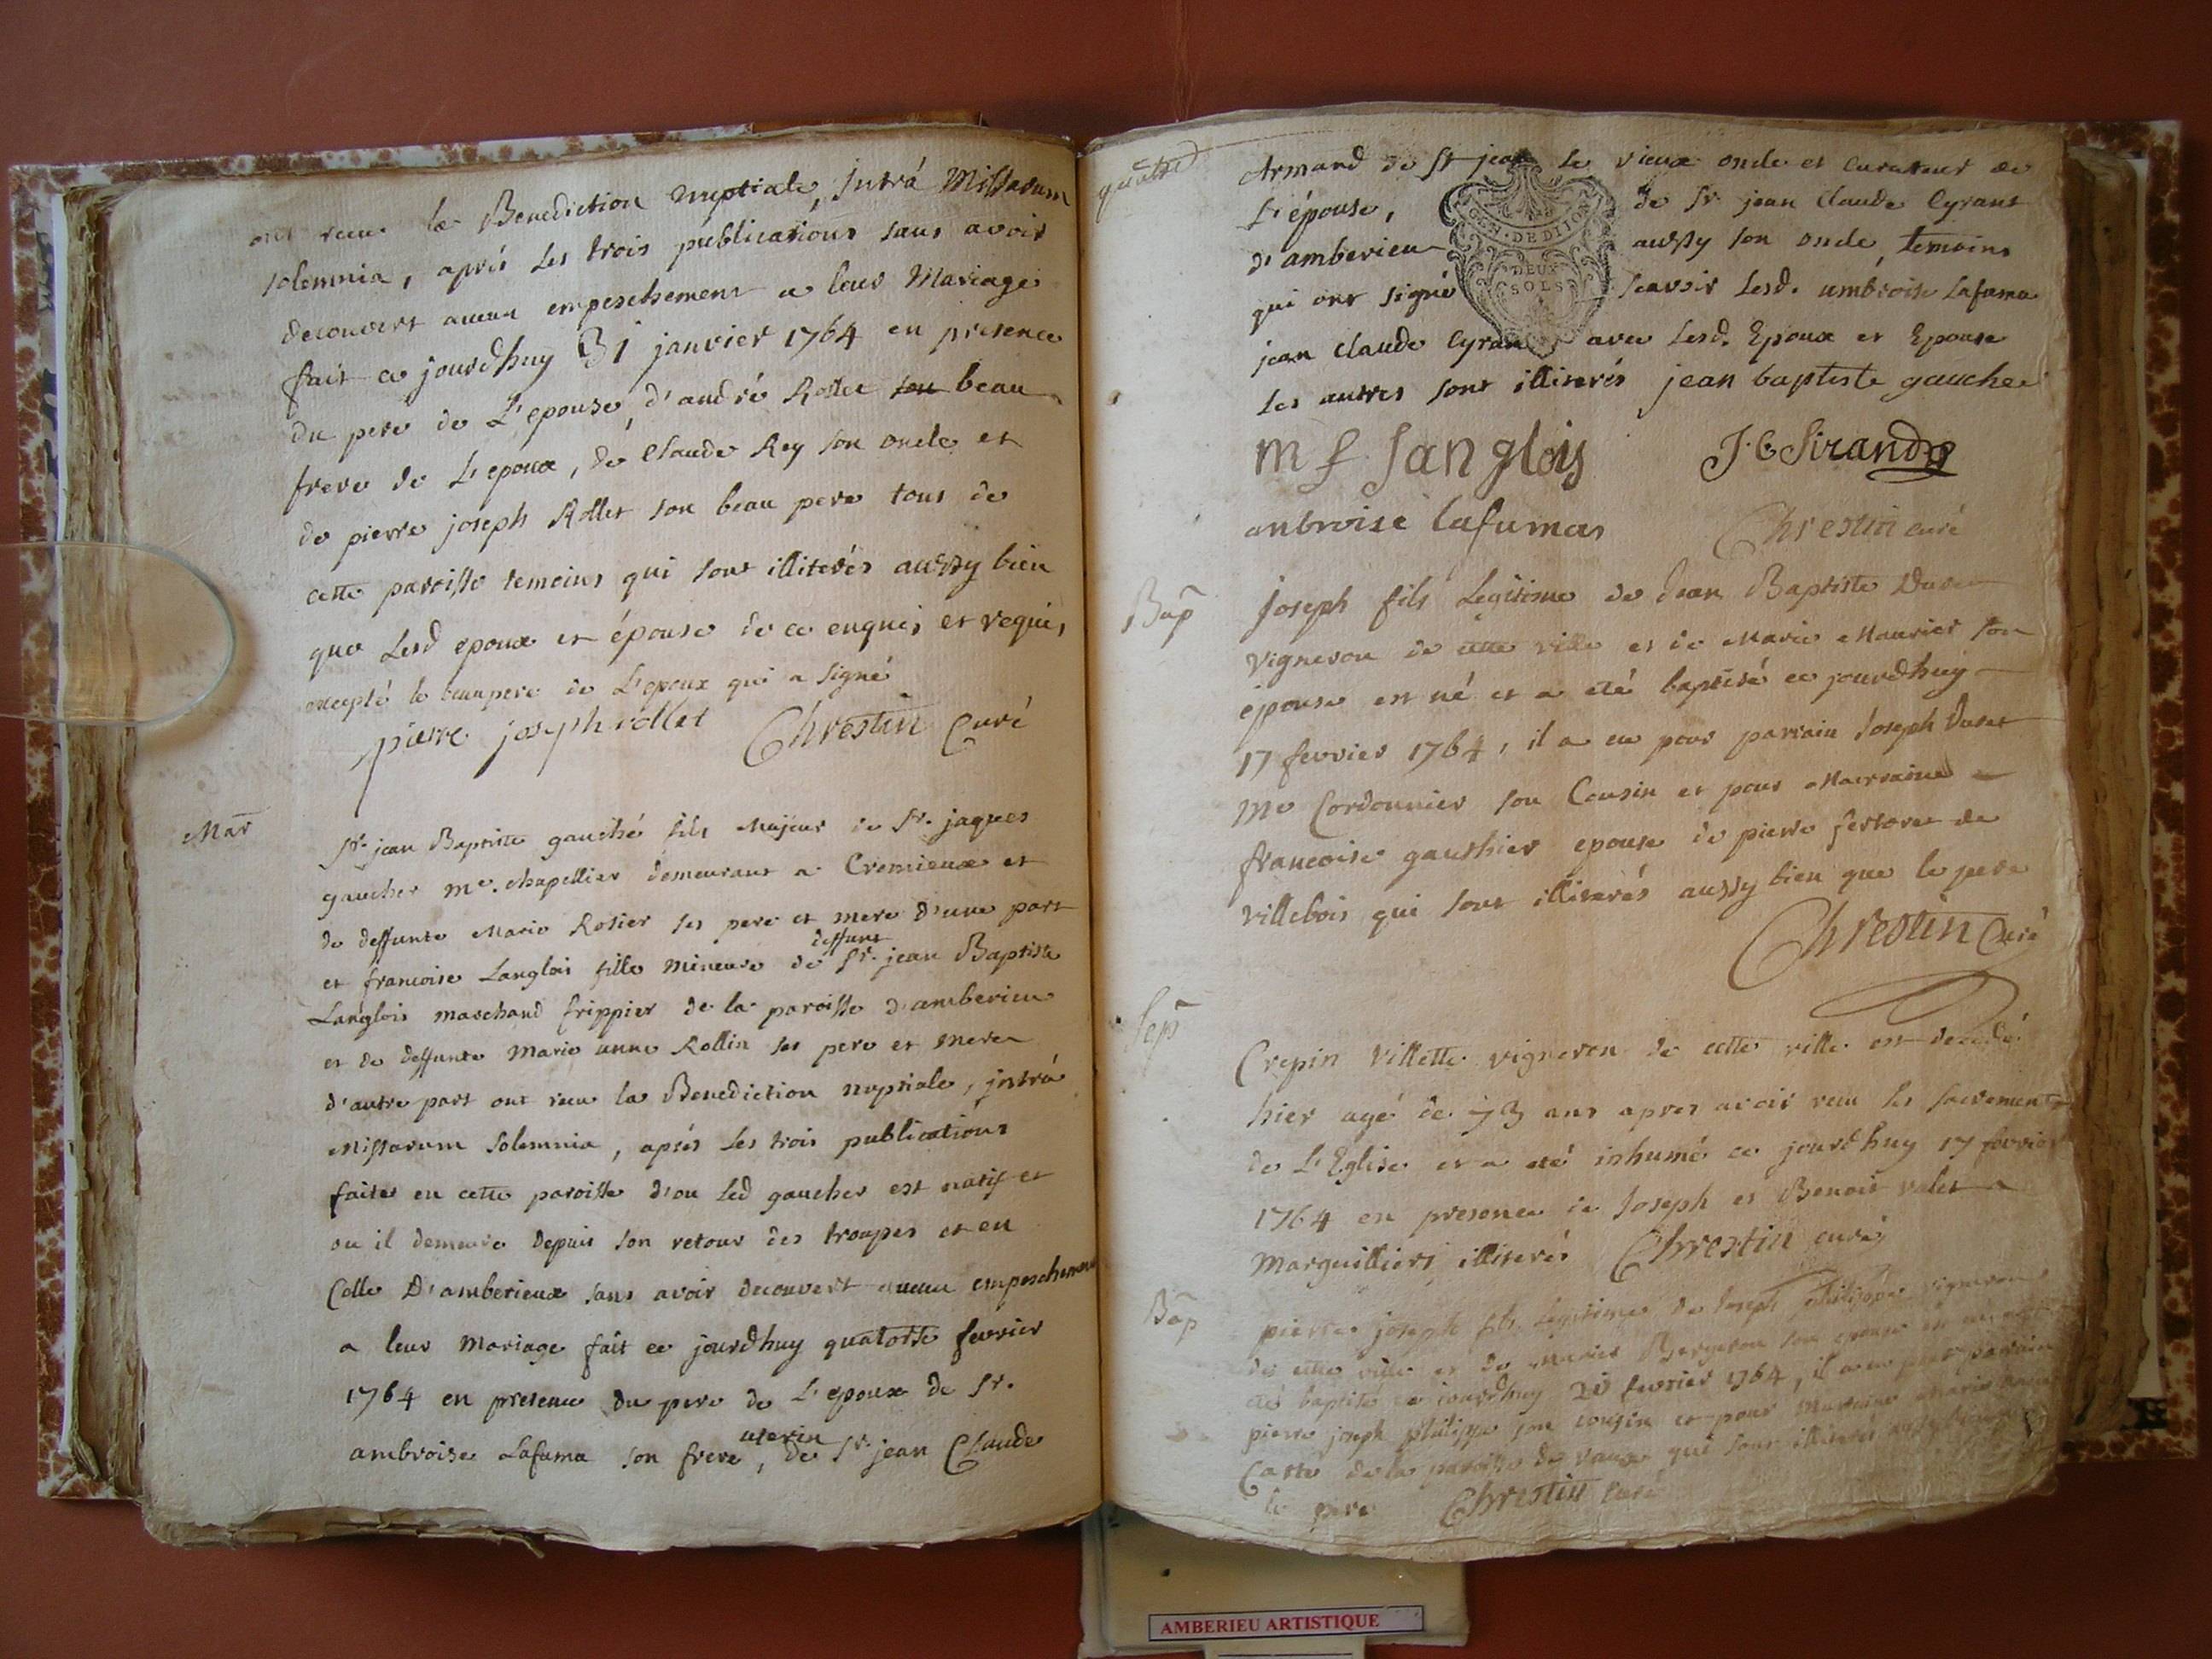 ont receu la Benediction nuptiale, Intrá Missarum
solemnia, aprés les trois publications sans avoir
decouvert aucun empeschement a leur Mariage
fait ce jourdhuy 31 janvier 1764 en presence
du pere de L'epouse, d'andré Rollet son beau
frere de L'epoux, de Claude Rey son oncle et
de pierre joseph Rollet son beau pere tous de
cette paroisse temoins qui sont illiterés aussy bien
que Lesd epoux et épouse de ce enquis et requis
excepté le beaupere de L'epoux qui a signé
pierre joseph rollet Chrestin Curé
Mar
Sr. jean Baptiste gauché fils Majeur de Sr. jaques
gaucher me. chapellier demeurant a Cremieux et
de deffunte Marie Rosier ses pere et mere d'une part
et francoise Langlois fille mineure de deffunt Sr. jean Baptiste
Langlois marchand frippier de la paroisse d'amberieu
et de deffunte Marie anne Rollin ses pere et mere
d'autre part ont receu la Benediction nuptiale, intrá
Missarum solemnia, aprés les trois publications
faites en cette paroisse d'ou led gaucher est natif et
ou il demeure depuis son retour des troupes et en
Celle D'amberieux sans avoir decouvert aucun empeschement
a leur Mariage fait ce jourdhuy quatorse fevrier
1764 en presence du pere de L'epoux de Sr.
ambroise Lafuma son frere uterin, de Sr. jean Claude
quatre
Armand de St jean le vieux oncle et curateur de
L'épouse, de Sr. jean Claude Cyrant
d'amberieu aussy son oncle, temoins
qui ont signé scavoir Lesd. ambroise Lafuma
jean Claude Cyran avec Lesd. Epoux et Epouse
Les autres sont illiterés jean baptiste gaucher
GEN. DE DIJON
DEUX
SOLS
m f langlois J. C Sirand
anbroise lafumas Chrestin curé
Bap
Joseph fils Legitime de Jean Baptiste
vigneron de cette ville et de Marie Maurier son
épouse est né et a eté baptisé ce jourdhuy
17 fevrier 1764, il a eu pour parrain Joseph
Me Cordonnier son Cousin et pour Marraine
francoise gauthier epouse de pierre de
villebois qui sont illiterés aussy bien que le pere
Chrestin Curé
Sep
Crepin Villette vigneron de cette ville est decedé
hier agé de 73 ans apres avoir receu les sacrements
de L'Eglise et a eté inhumé ce jourdhuy 17 fevrier
1764 en presence de Joseph et Benoit valet
Marguilliers illiterés Chrestin curé
Bap
pierre joseph fils Legitime de Joseph philippe vigneron
de cette ville et de Marie Bergeron son epouse est né
eté baptisé ce jourdhuy fevrier 1764, il a eu pour parrain
pierre joseph philippe son cousin et pour Marraine Marie
de la paroisse de vaux qui sont illiterés aussy bien que
le pere Chrestin Curé
AMBERIEU ARTISTIQUE